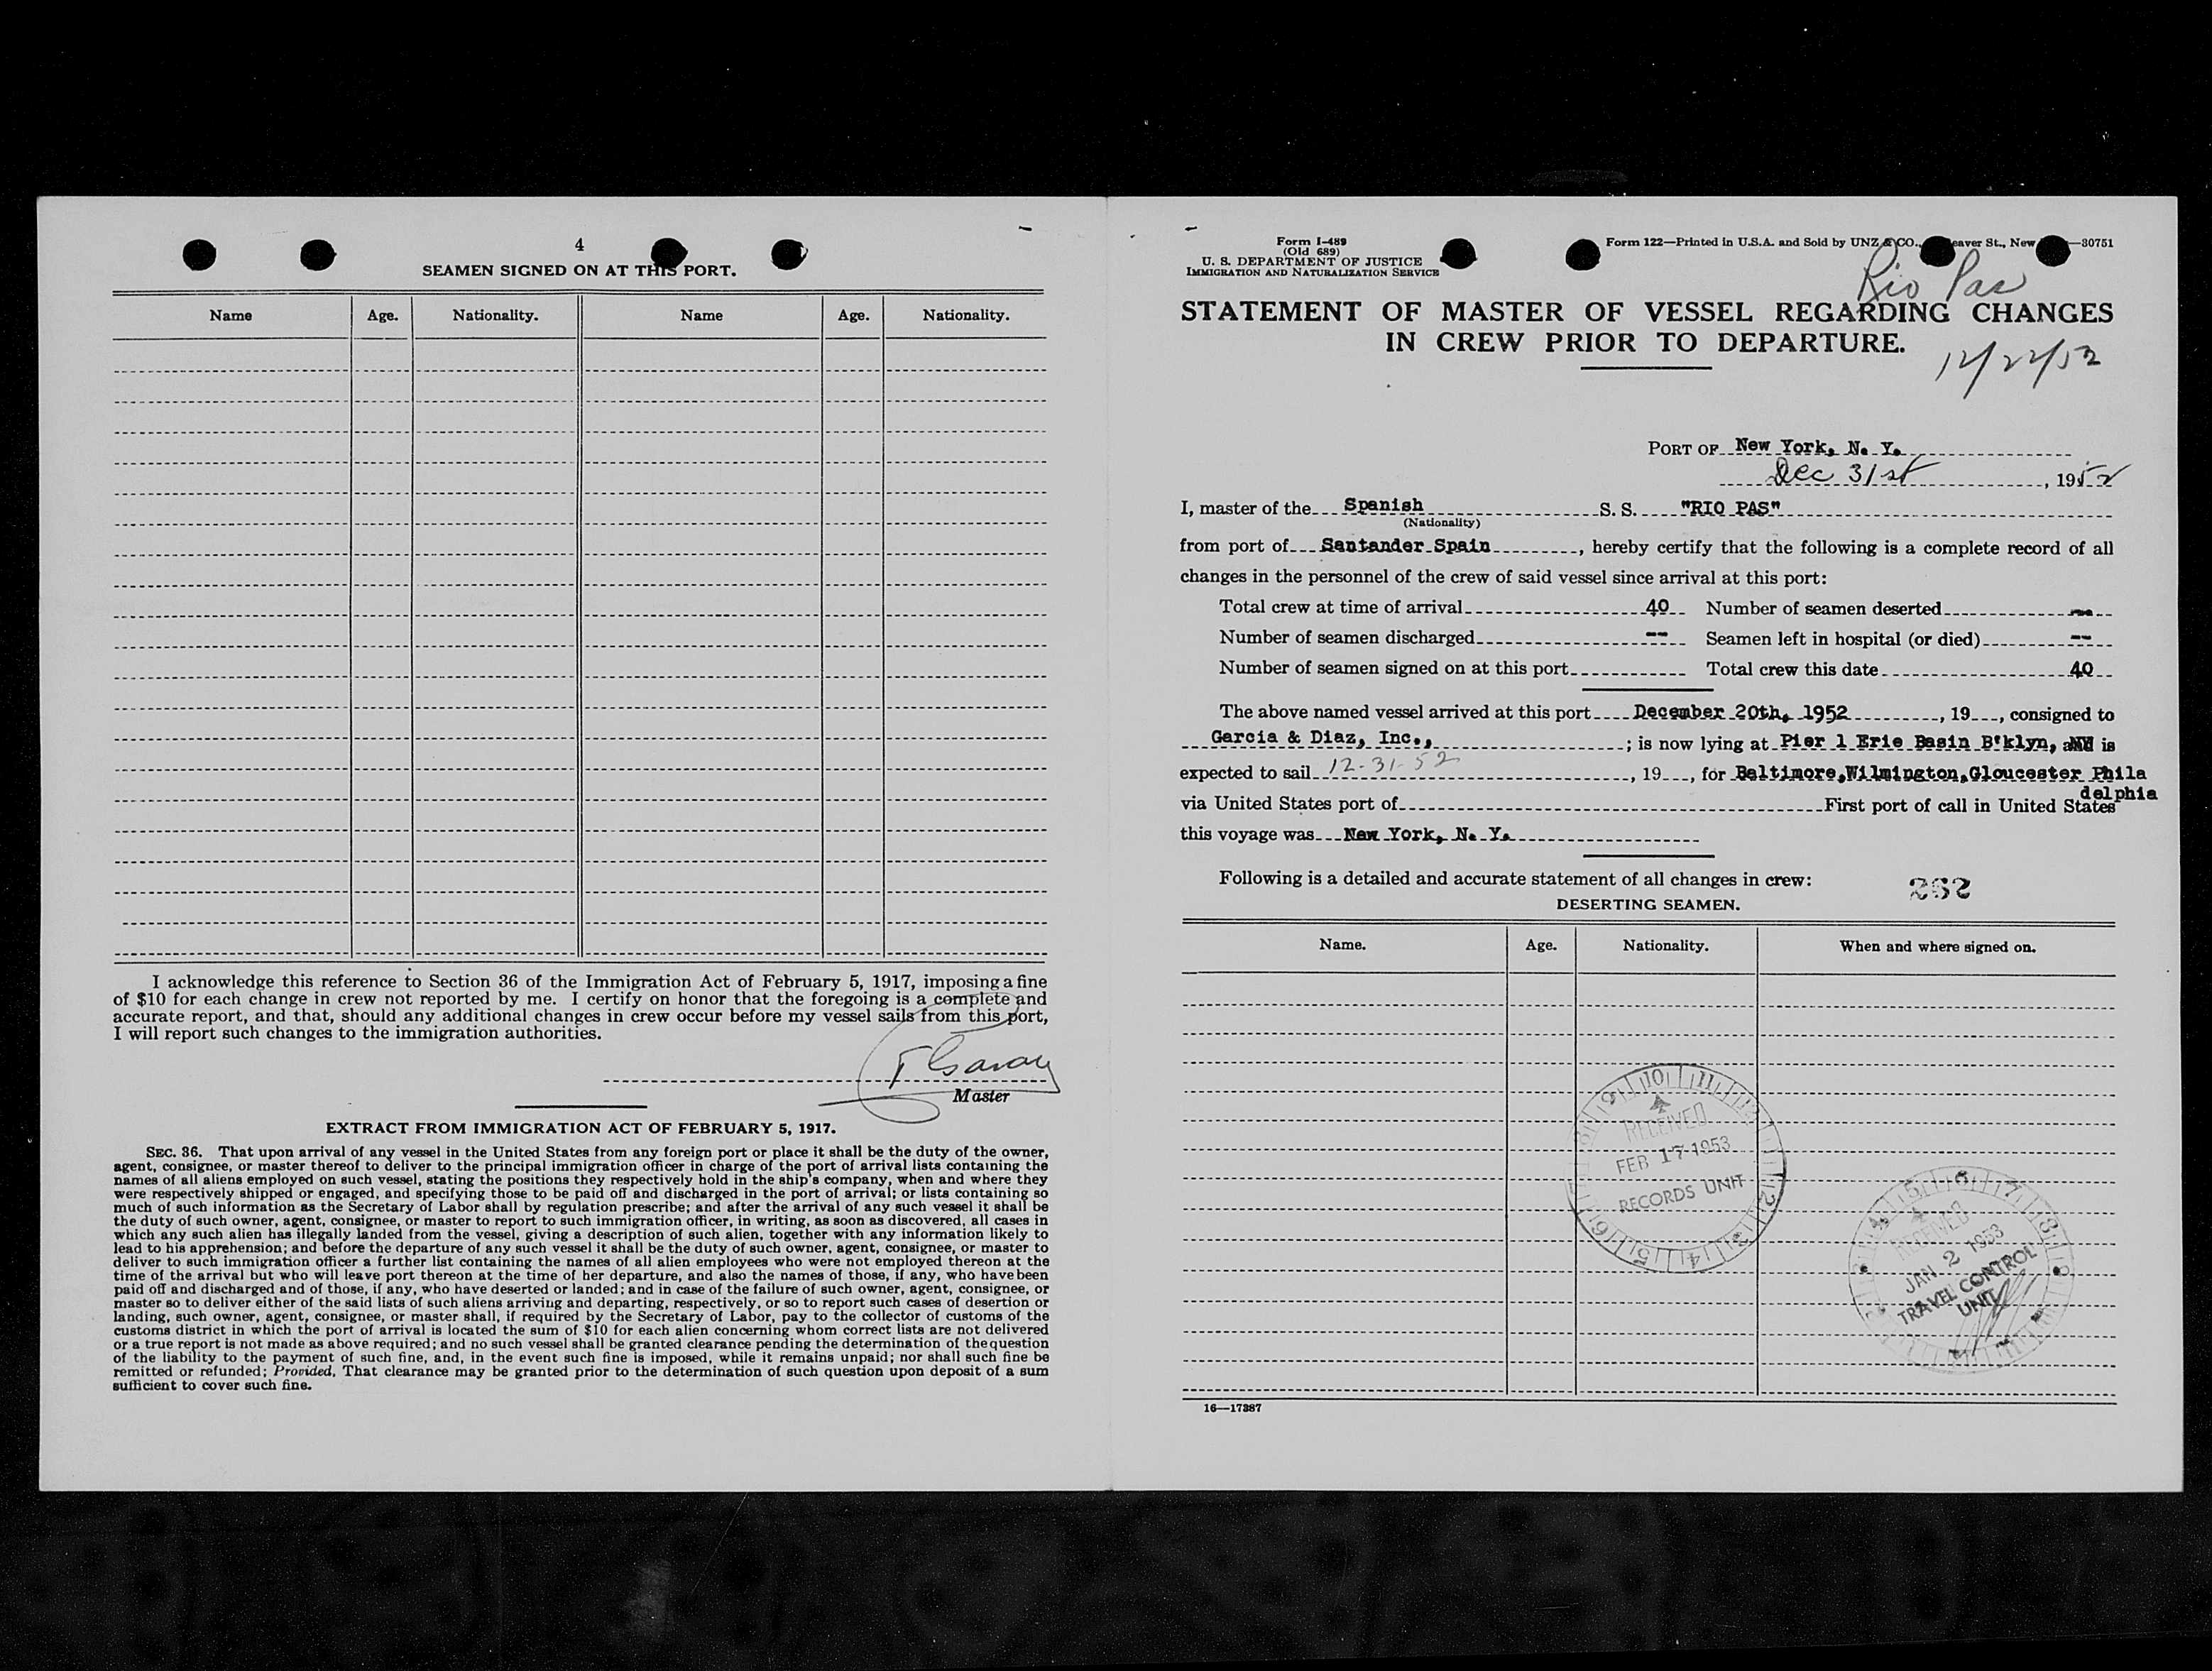 4
SEAMEN SIGNED ON AT THIS PORT.
Name Age. Nationality. Name Age. Nationality.
I acknowledge this reference to Section 36 of the Immigration Act of February 5, 1917, imposing a fine
of $10 for each change in crew not reported by me. I certify on honor that the foregoing is a complete and
accurate report, and that, should any additional changes in crew occur before my vessel sails from this port,
I will report such changes to the immigration authorities.
Master
EXTRACT FROM IMMIGRATION ACT OF FEBRUARY 5, 1917.
SEC. 36. That upon arrival of any vessel in the United States from any foreign port or place it shall be the duty of the owner,
agent, consignee, or master thereof to deliver to the principal immigration officer in charge of the port of arrival lists containing the
names of all aliens employed on such vessel, stating the positions they respectively hold in the ship's company, when and where they
were respectively shipped or engaged, and specifying those to be paid off and discharged in the port of arrival; or lists containing so
much of such information as the Secretary of Labor shall by regulation prescribe; and after the arrival of any such vessel it shall be
the duty of such owner, agent, consignee, or master to report to such immigration officer, in writing, as soon as discovered, all cases in
which any such alien has illegally landed from the vessel, giving a description of such alien, together with any information likely to
lead to his apprehension; and before the departure of any such vessel it shall be the duty of such owner, agent, consignee, or master to
deliver to such immigration officer a further list containing the names of all alien employees who were not employed thereon at the
time of the arrival but who will leave port thereon at the time of her departure, and also the names of those, if any, who have been
paid off and discharged and of those, if any, who have deserted or landed; and in case of the failure of such owner, agent, consignee, or
master so to deliver either of the said lists of such aliens arriving and departing, respectively, or so to report such cases of desertion or
landing, such owner, agent, consignee, or master shall, if required by the Secretary of Labor, pay to the collector of customs of the
customs district in which the port of arrival is located the sum of $10 for each alien concerning whom correct lists are not delivered
or a true report is not made as above required; and no such vessel shall be granted clearance pending the determination of the question
of the liability to the payment of such fine, and, in the event such fine is imposed, while it remains unpaid; nor shall such fine be
remitted or refunded; Provided, That clearance may be granted prior to the determination of such question upon deposit of a sum
sufficient to cover such fine.
Form I-489
(Old 689)
U. S. DEPARTMENT OF JUSTICE
IMMIGRATION AND NATURALIZATION SERVICE
Form 122—Printed in U.S.A. and Sold by UNZ & CO., eaver St., New —30751
Rio Pas
STATEMENT OF MASTER OF VESSEL REGARDING CHANGES
IN CREW PRIOR TO DEPARTURE.
12/22/52
PORT OF New York, N. Y.
Dec 31st, 1952
I, master of the Spanish S. S. "RIO PAS"
(Nationality)
from port of Santander Spain, hereby certify that the following is a complete record of all
changes in the personnel of the crew of said vessel since arrival at this port:
Total crew at time of arrival 40 Number of seamen deserted --
Number of seamen discharged -- Seamen left in hospital (or died) --
Number of seamen signed on at this port Total crew this date 40
The above named vessel arrived at this port December 20th, 1952, 19 , consigned to
Garcia & Diaz, Inc., ; is now lying at Pier 1 Erie Basin B'klyn, and is
expected to sail 12-31-52, 19 , for Baltimore,Wilmington,Gloucester Phila
delphia
via United States port of First port of call in United States
this voyage was New York, N. Y.
Following is a detailed and accurate statement of all changes in crew:
262
DESERTING SEAMEN.
Name. Age. Nationality. When and where signed on.
9 10 11 12
RECEIVED
FEB 17 1953
RECORDS UNIT
6 5 4 3 2
5 6 7 8
RECEIVED
JAN 2 1953
TRAVEL CONTROL
UNIT
16—17387